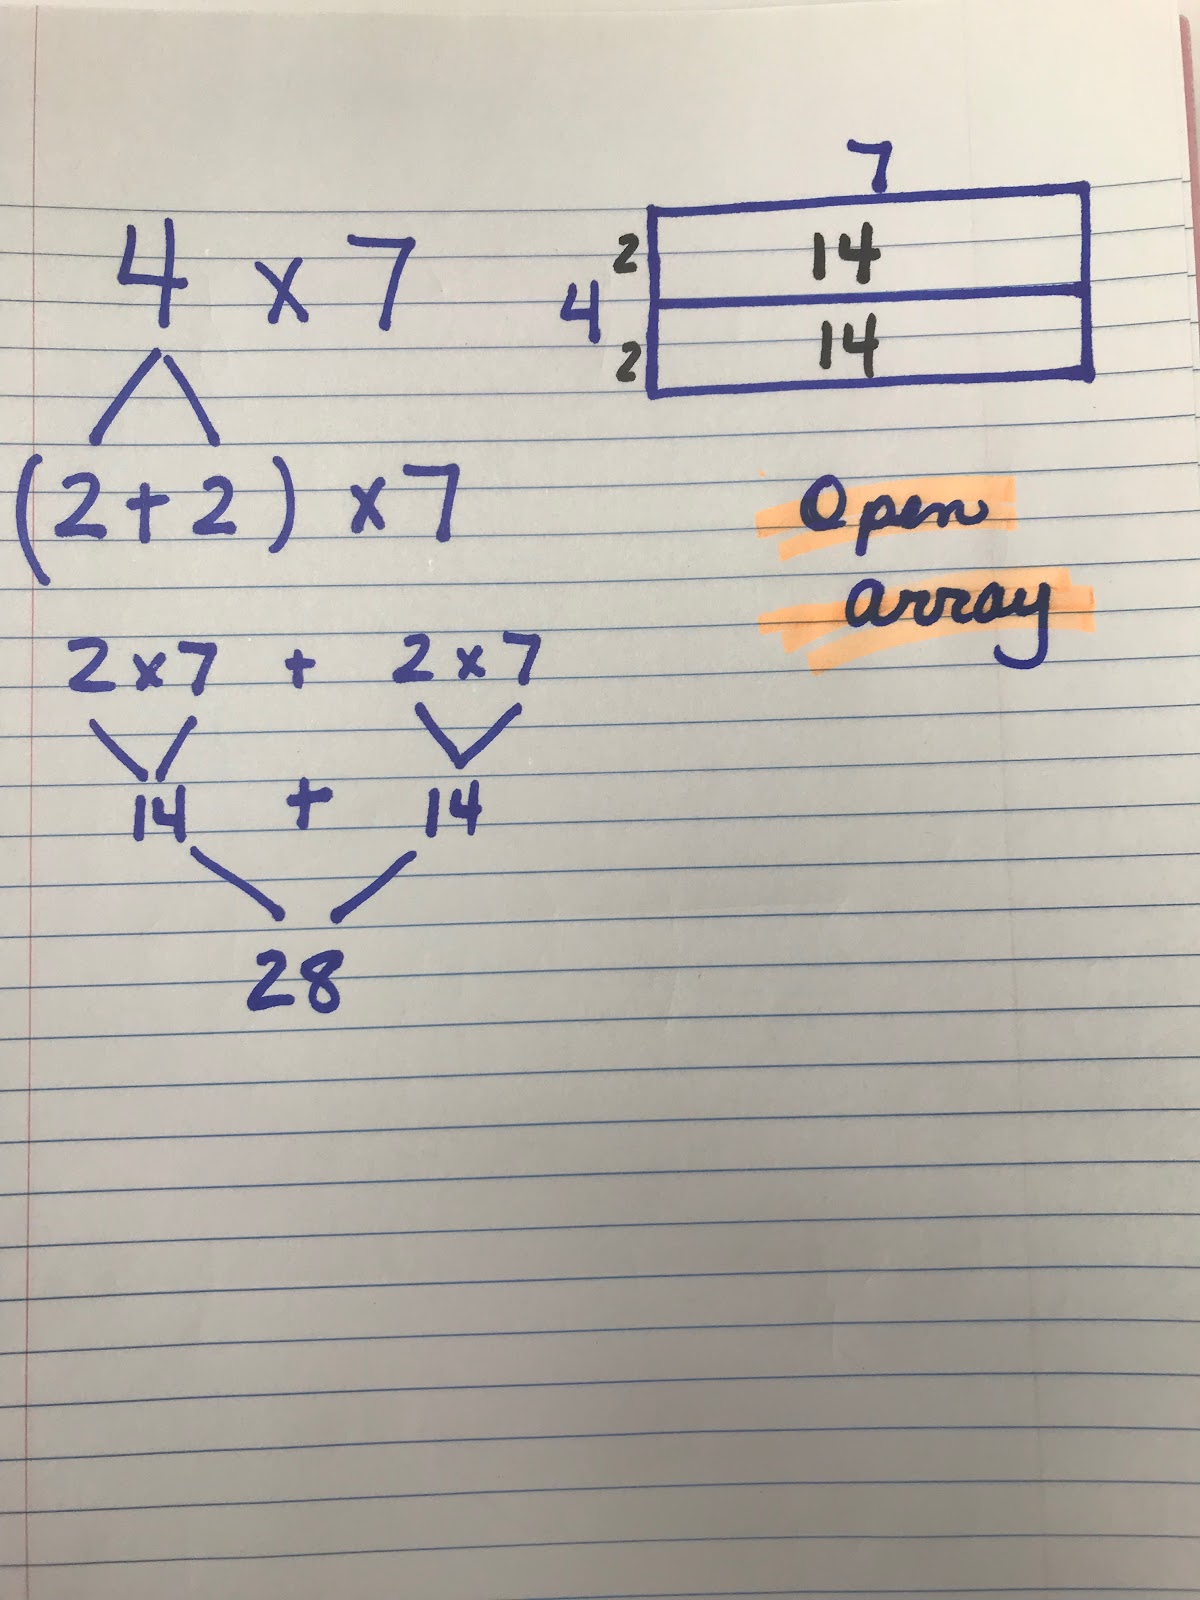 4 x 7
(2 + 2) x 7
2 x 7 + 2 x 7
14 + 14
28
7
2 14
4
2 14
Open
array